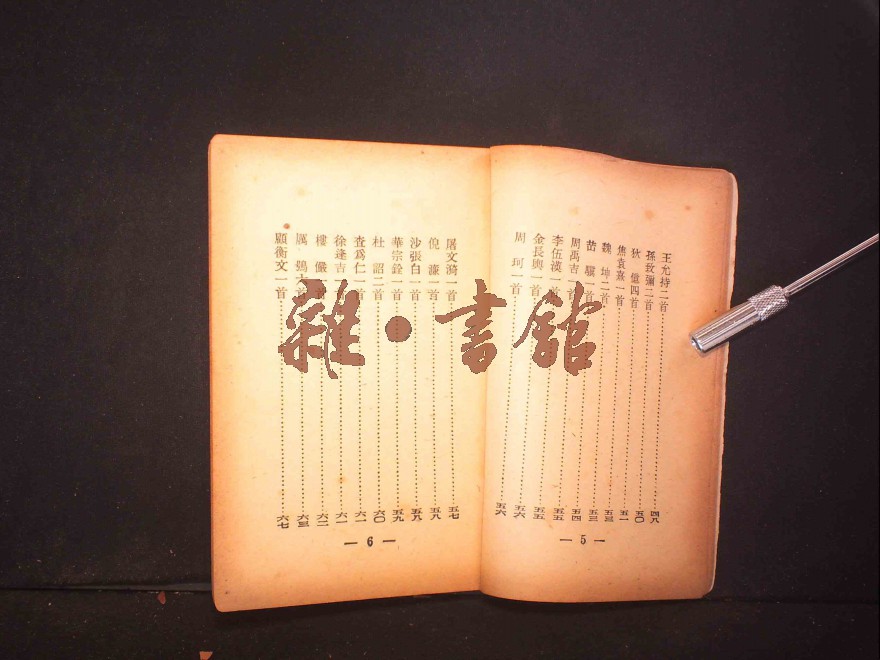 王允持二首……四八
孫致彌二首……五〇
狄億四首……五〇
焦袁熹一首……五一
魏坤二首……五三
苗騤一首……五三
周禹吉一首……五四
李伍渶一首……五五
金長輿一首……五五
周珂一首……五六
— 5 —
屠文漪一首……五七
倪濂一首……五八
沙張白一首……五八
華宗銓一首……五九
杜詔二首……六〇
查爲仁一首……六一
徐逢吉一首……六一
樓儼一首……六二
厲鶚 首……六三
顧衡文一首……六七
— 6 —
雜·書館